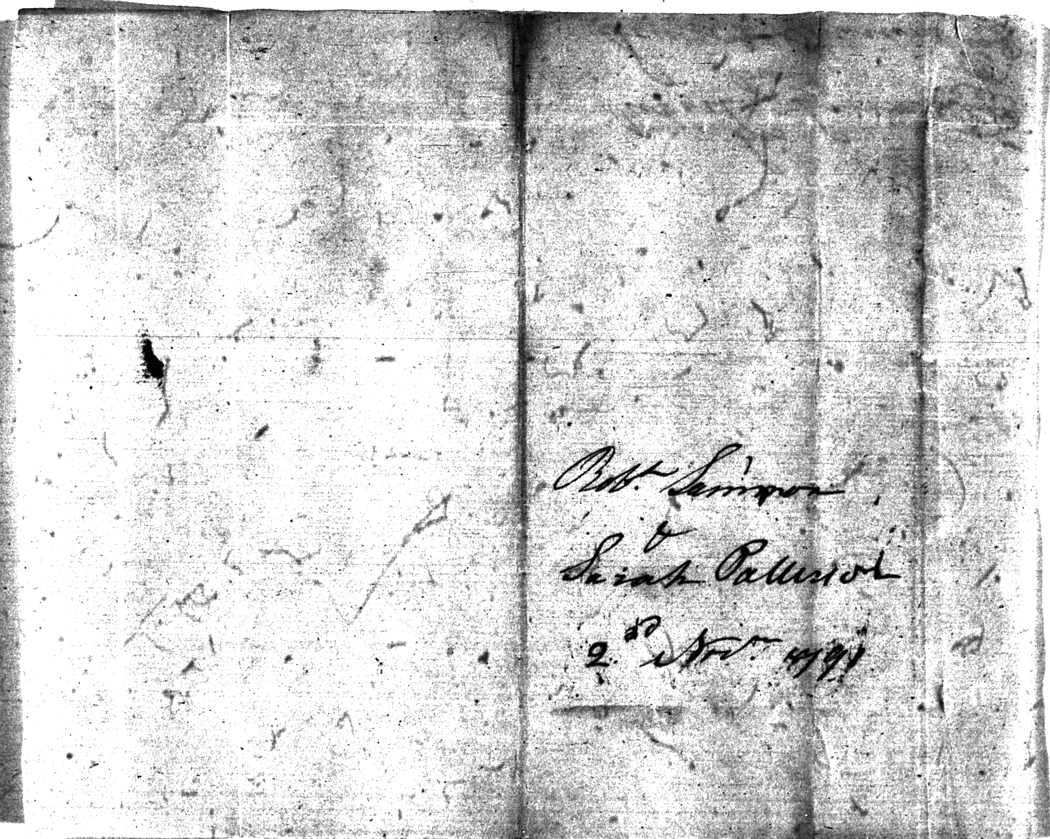 Robt. Simpson
&
Sarah Patterson
2nd Novr. 1791